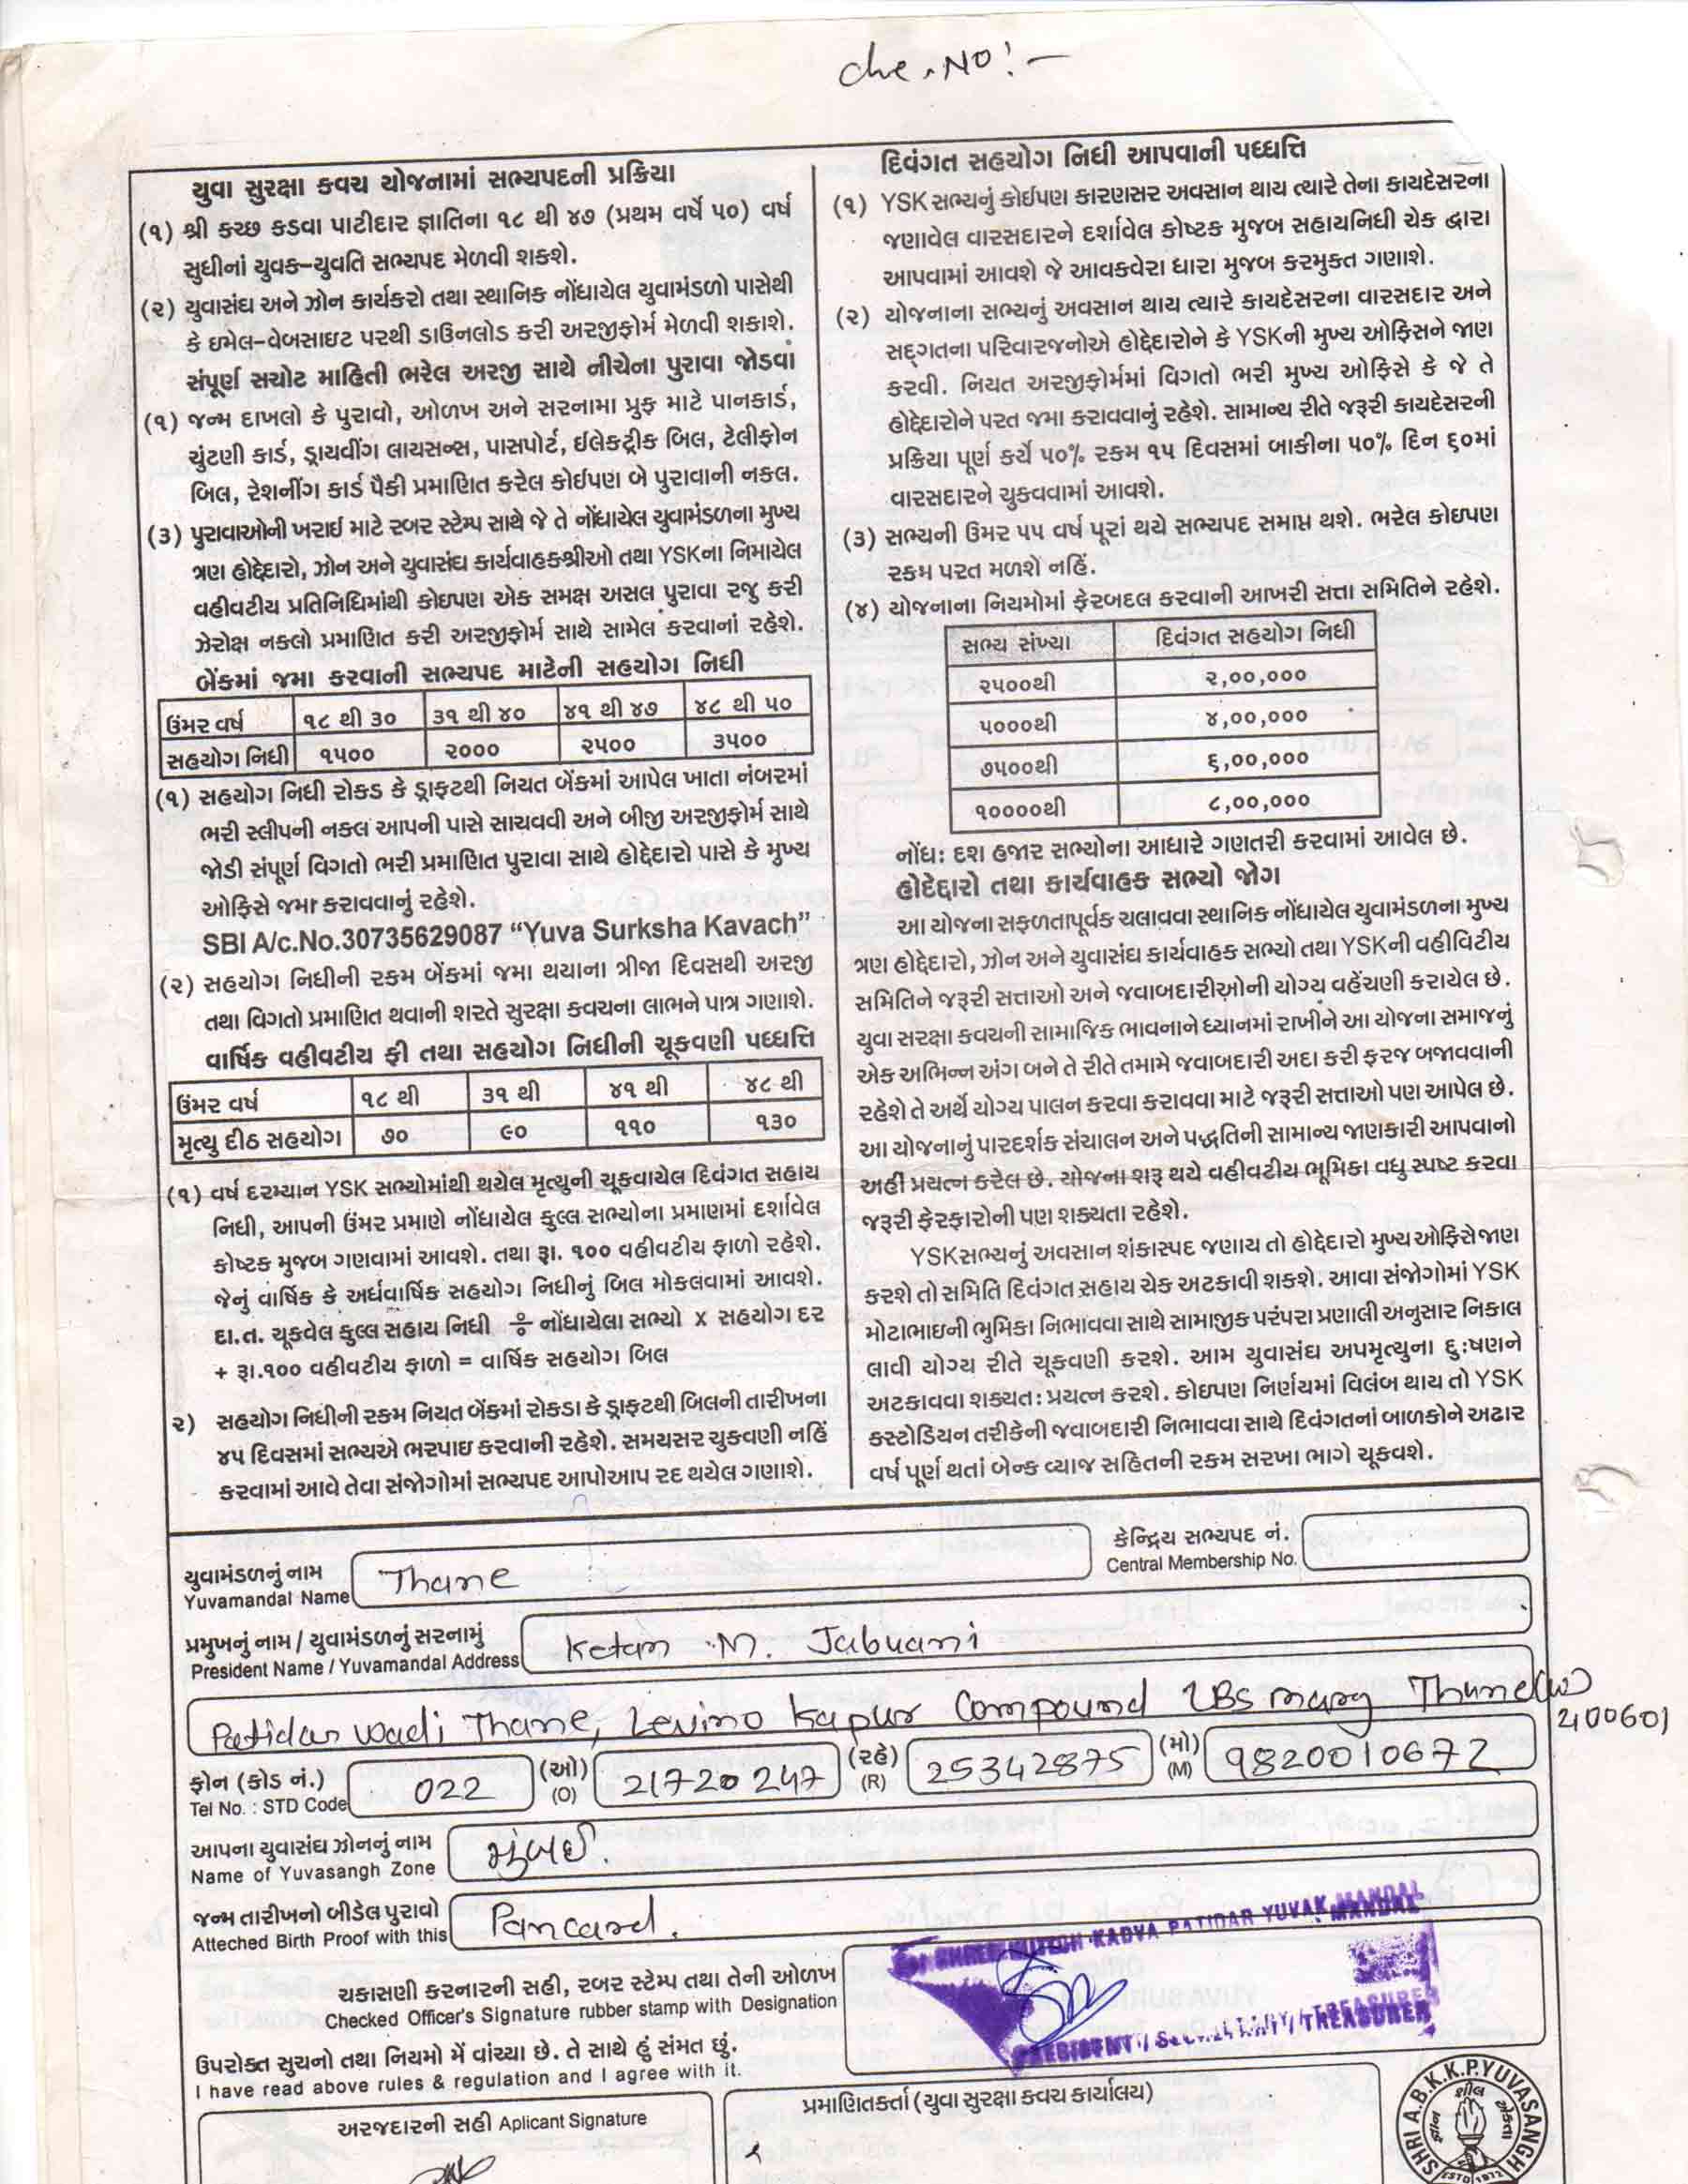 che. No! -
યુવા સુરક્ષા કવચ યોજનામાં સભ્યપદની પ્રક્રિયા
(૧) શ્રી કચ્છ કડવા પાટીદાર જ્ઞાતિના ૧૮ થી ૪૭ (પ્રથમ વર્ષે ૫૦) વર્ષ
સુધીનાં યુવક-યુવતિ સભ્યપદ મેળવી શકશે.
(૨) યુવાસંઘ અને ઝોન કાર્યકરો તથા સ્થાનિક નોંધાયેલ યુવામંડળો પાસેથી
કે ઇમેલ-વેબસાઇટ પરથી ડાઉનલોડ કરી અરજીફોર્મ મેળવી શકાશે.
સંપૂર્ણ સચોટ માહિતી ભરેલ અરજી સાથે નીચેના પુરાવા જોડવાં
(૧) જન્મ દાખલો કે પુરાવો, ઓળખ અને સરનામા પ્રુફ માટે પાનકાર્ડ,
ચુંટણી કાર્ડ, ડ્રાયવીંગ લાયસન્સ, પાસપોર્ટ, ઈલેકટ્રીક બિલ, ટેલીફોન
બિલ, રેશનીંગ કાર્ડ પૈકી પ્રમાણિત કરેલ કોઈપણ બે પુરાવાની નકલ.
(૩) પુરાવાઓની ખરાઈ માટે રબર સ્ટેમ્પ સાથે જે તે નોંધાયેલ યુવામંડળના મુખ્ય
ત્રણ હોદ્દેદારો, ઝોન અને યુવાસંઘ કાર્યવાહકશ્રીઓ તથા YSKના નિમાયેલ
વહીવટીય પ્રતિનિધિમાંથી કોઇપણ એક સમક્ષ અસલ પુરાવા રજુ કરી
ઝેરોક્ષ નકલો પ્રમાણિત કરી અરજીફોર્મ સાથે સામેલ કરવાનાં રહેશે.
બેંકમાં જમા કરવાની સભ્યપદ માટેની સહયોગ નિધી
ઉંમર વર્ષ ૧૮ થી ૩૦ ૩૧ થી ૪૦ ૪૧ થી ૪૭ ૪૮ થી ૫૦
સહયોગ નિધી ૧૫૦૦ ૨૦૦૦ ૨૫૦૦ ૩૫૦૦
(૧) સહયોગ નિધી રોકડ કે ડ્રાફટથી નિયત બેંકમાં આપેલ ખાતા નંબરમાં
ભરી સ્લીપની નકલ આપની પાસે સાચવવી અને બીજી અરજીફોર્મ સાથે
જોડી સંપૂર્ણ વિગતો ભરી પ્રમાણિત પુરાવા સાથે હોદ્દેદારો પાસે કે મુખ્ય
ઓફિસે જમા કરાવવાનું રહેશે.
SBI A/c.No.30735629087 “Yuva Surksha Kavach”
(૨) સહયોગ નિધીની રકમ બેંકમાં જમા થયાના ત્રીજા દિવસથી અરજી
તથા વિગતો પ્રમાણિત થવાની શરતે સુરક્ષા કવચના લાભને પાત્ર ગણાશે.
વાર્ષિક વહીવટીય ફી તથા સહયોગ નિધીની ચૂકવણી પધ્ધતિ
ઉંમર વર્ષ ૧૮ થી ૩૧ થી ૪૧ થી ૪૮ થી
મૃત્યુ દીઠ સહયોગ ૭૦ ૯૦ ૧૧૦ ૧૩૦
(૧) વર્ષ દરમ્યાન YSK સભ્યોમાંથી થયેલ મૃત્યુની ચૂકવાયેલ દિવંગત સહાય
નિધી, આપની ઉંમર પ્રમાણે નોંધાયેલ કુલ્લ સભ્યોના પ્રમાણમાં દર્શાવેલ
કોષ્ટક મુજબ ગણવામાં આવશે. તથા રૂા. ૧૦૦ વહીવટીય ફાળો રહેશે.
જેનું વાર્ષિક કે અર્ધવાર્ષિક સહયોગ નિધીનું બિલ મોકલવામાં આવશે.
દા.ત. ચૂકવેલ કુલ્લ સહાય નિધી ÷ નોંધાયેલા સભ્યો x સહયોગ દર
+ રૂા.૧૦૦ વહીવટીય ફાળો = વાર્ષિક સહયોગ બિલ
૨) સહયોગ નિધીની રકમ નિયત બેંકમાં રોકડા કે ડ્રાફટથી બિલની તારીખના
૪૫ દિવસમાં સભ્યએ ભરપાઇ કરવાની રહેશે. સમયસર ચુકવણી નહિં
કરવામાં આવે તેવા સંજોગોમાં સભ્યપદ આપોઆપ રદ થયેલ ગણાશે.
દિવંગત સહયોગ નિધી આપવાની પધ્ધતિ
(૧) YSK સભ્યનું કોઈપણ કારણસર અવસાન થાય ત્યારે તેના કાયદેસરના
જણાવેલ વારસદારને દર્શાવેલ કોષ્ટક મુજબ સહાયનિધી ચેક દ્વારા
આપવામાં આવશે જે આવકવેરા ધારા મુજબ કરમુક્ત ગણાશે.
(૨) યોજનાના સભ્યનું અવસાન થાય ત્યારે કાયદેસરના વારસદાર અને
સદ્દગતના પરિવારજનોએ હોદ્દેદારોને કે YSKની મુખ્ય ઓફિસને જાણ
કરવી. નિયત અરજીફોર્મમાં વિગતો ભરી મુખ્ય ઓફિસે કે જે તે
હોદ્દેદારોને પરત જમા કરાવવાનું રહેશે. સામાન્ય રીતે જરૂરી કાયદેસરની
પ્રક્રિયા પૂર્ણ કર્યે ૫૦% રકમ ૧૫ દિવસમાં બાકીના ૫૦% દિન ૬૦માં
વારસદારને ચુકવવામાં આવશે.
(૩) સભ્યની ઉમર ૫૫ વર્ષ પૂરાં થયે સભ્યપદ સમાપ્ત થશે. ભરેલ કોઇપણ
રકમ પરત મળશે નહિં.
(૪) યોજનાના નિયમોમાં ફેરબદલ કરવાની આખરી સત્તા સમિતિને રહેશે.
સભ્ય સંખ્યા દિવંગત સહયોગ નિધી
૨૫૦૦થી ૨,૦૦,૦૦૦
૫૦૦૦થી ૪,૦૦,૦૦૦
૭૫૦૦થી ૬,૦૦,૦૦૦
૧૦૦૦૦થી ૮,૦૦,૦૦૦
નોંધ: દશ હજાર સભ્યોના આધારે ગણતરી કરવામાં આવેલ છે.
હોદેદ્દારો તથા કાર્યવાહક સભ્યો જોગ
આ યોજના સફળતાપૂર્વક ચલાવવા સ્થાનિક નોંધાયેલ યુવામંડળના મુખ્ય
ત્રણ હોદ્દેદારો, ઝોન અને યુવાસંઘ કાર્યવાહક સભ્યો તથા YSKની વહીવિટીય
સમિતિને જરૂરી સત્તાઓ અને જવાબદારીઓની યોગ્ય વહેંચણી કરાયેલ છે.
યુવા સરક્ષા કવચની સામાજિક ભાવનાને ધ્યાનમાં રાખીને આ યોજના સમાજનું
એક અભિન્ન અંગ બને તે રીતે તમામે જવાબદારી અદા કરી ફરજ બજાવવાની
રહેશે તે અર્થે યોગ્ય પાલન કરવા કરાવવા માટે જરૂરી સત્તાઓ પણ આપેલ છે.
આ યોજનાનું પારદર્શક સંચાલન અને પદ્ધતિની સામાન્ય જાણકારી આપવાનો
અહીં પ્રયત્ન કરેલ છે. યોજના શરૂ થયે વહીવટીય ભૂમિકા વધુ સ્પષ્ટ કરવા
જરૂરી ફેરફારોની પણ શક્યતા રહેશે.
YSKસભ્યનું અવસાન શંકાસ્પદ જણાય તો હોદ્દેદારો મુખ્ય ઓફિસે જાણ
કરશે તો સમિતિ દિવંગત સહાય ચેક અટકાવી શકશે. આવા સંજોગોમાં YSK
મોટાભાઇની ભુમિકા નિભાવવા સાથે સામાજીક પરંપરા પ્રણાલી અનુસાર નિકાલ
લાવી યોગ્ય રીતે ચૂકવણી કરશે. આમ યુવાસંઘ અપમૃત્યુના દુઃષણને
અટકાવવા શક્યત: પ્રયત્ન કરશે. કોઇપણ નિર્ણયમાં વિલંબ થાય તો YSK
ક્સ્ટોડિયન તરીકેની જવાબદારી નિભાવવા સાથે દિવંગતનાં બાળકોને અઢાર
વર્ષ પૂર્ણ થતાં બેન્ક વ્યાજ સહિતની રકમ સરખા ભાગે ચૂકવશે.
યુવામંડળનું નામ કેન્દ્રિય સભ્યપદ નં.
Yuvamandal Name Thane Central Membership No.
પ્રમુખનું નામ / યુવામંડળનું સરનામું
President Name / Yuvamandal Address Ketan M. Jabuani
Patidar wadi Thane, Levino Kapur Compound LBS marg Thane (w)
400601
ફોન (કોડ નં.) (ઓ) (રહે) (મો)
Tel No. : STD Code 022 (O) 21720247 (R) 25342875 (M) 9820010672
આપના યુવાસંઘ ઝોનનું નામ
Name of Yuvasangh Zone મુંબઈ.
જન્મ તારીખનો બીડેલ પુરાવો
Atteched Birth Proof with this Pancard.
KADVA PATIDAR YUVAK MANDAL
ચકાસણી કરનારની સહી, રબર સ્ટેમ્પ તથા તેની ઓળખ
Checked Officer's Signature rubber stamp with Designation
PRESIDENT / SECRETARY / TREASURER
ઉપરોક્ત સુચનો તથા નિયમો મેં વાંચ્યા છે. તે સાથે હું સંમત છું.
I have read above rules & regulation and I agree with it.
અરજદારની સહી Aplicant Signature
પ્રમાણિતકર્તા (યુવા સુરક્ષા કવચ કાર્યાલય)
SHRI A.B.K.K.P.YUVASANGH
શીલ